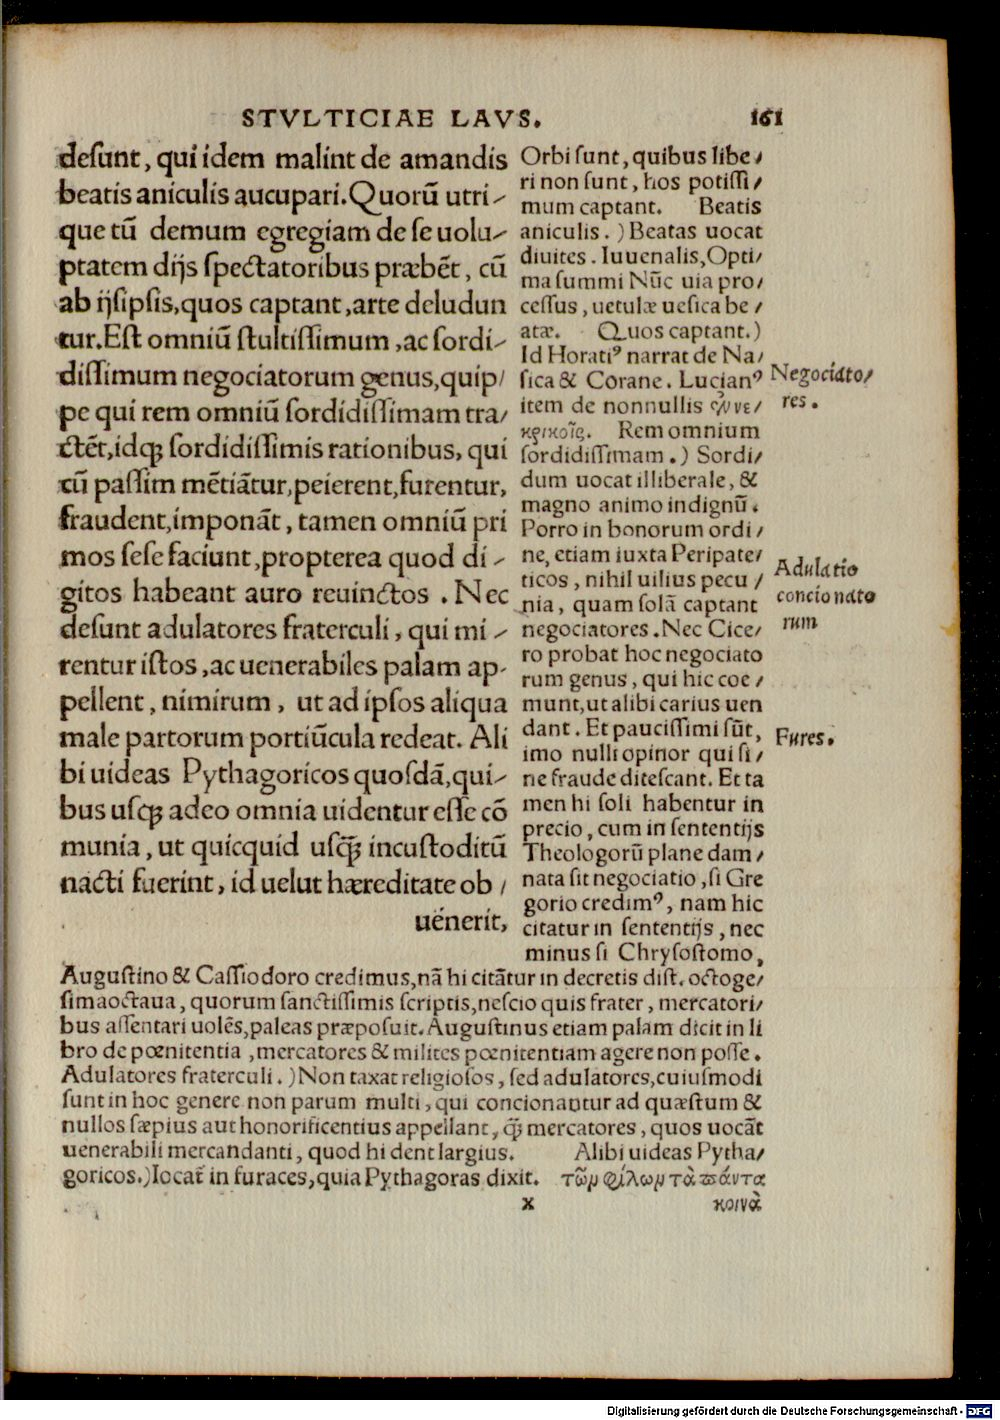 STVLTICIAE LAVS. 161
desunt, qui idem malint de amandis
beatis aniculis aucupari. Quorũ utri-
que tũ demum egregiam de se uolu-
ptatem dijs spectatoribus præbẽt, cũ
ab ijsipsis, quos captant, arte deludun
tur. Est omniũ stultissimum, ac sordi-
dissimum negociatorum genus, quip/
pe qui rem omniũ sordidissimam tra/
ctẽt, idq; sordidissimis rationibus, qui
cũ passim mẽtiãtur, peierent, furentur,
fraudent, imponãt, tamen omniũ pri
mos sese faciunt, propterea quod di-
gitos habeant auro reuinctos. Nec
desunt adulatores fraterculi, qui mi-
rentur istos, ac uenerabiles palam ap-
pellent, nimirum, ut ad ipsos aliqua
male partorum portiũcula redeat. Ali
bi uideas Pythagoricos quosdã, qui-
bus usq; adeo omnia uidentur esse cõ
munia, ut quicquid usq̃; incustoditũ
nacti fuerint, id uelut hæreditate ob/
uénerit,
Orbi sunt, quibus libe/
ri non sunt, hos potissi/
mum captant. Beatis
aniculis.) Beatas uocat
diuites. Iuuenalis, Opti/
ma summi Nũc uia pro/
cessus, uetulæ uesica be/
atæ. Quos captant.)
Id Horatiꝰ narrat de Na/
sica & Corane. Lucianꝰ
item de nonnullis
κρικοῖς. Rem omnium
sordidissimam.) Sordi/
dum uocat illiberale, &
magno animo indignũ.
Porro in bonorum ordi/
ne, etiam iuxta Peripate/
ticos, nihil uilius pecu/
nia, quam solã captant
negociatores. Nec Cice/
ro probat hoc negociato
rum genus, qui hic coe/
munt, ut alibi carius uen
dant. Et paucissimi sũt,
imo nulli opinor qui si/
ne fraude ditescant. Et ta
men hi soli habentur in
precio, cum in sententijs
Theologorũ plane dam/
nata sit negociatio, si Gre
gorio credimꝰ, nam hic
citatur in sententijs, nec
minus si Chrysostomo,
Negociato/
res.
Adulatio
concionato
rum
Fures.
Augustino & Cassiodoro credimus, nã hi citãtur in decretis dist. octoge/
simaoctaua, quorum sanctissimis scriptis, nescio quis frater, mercatori/
bus assentari uolẽs, paleas præposuit. Augustinus etiam palam dicit in li
bro de pœnitentia, mercatores & milites pœnitentiam agere non posse.
Adulatores fraterculi.) Non taxat religiosos, sed adulatores, cuiusmodi
sunt in hoc genere non parum multi, qui concionantur ad quæstum &
nullos sæpius aut honorificentius appellant, q̃; mercatores, quos uocãt
uenerabili mercandanti, quod hi dent largius. Alibi uideas Pytha/
goricos.) Iocat̃ in furaces, quia Pythagoras dixit. τῶμ φίλωμ τὰ πάντα
x κοινὰ
Digitalisierung gefördert durch die Deutsche Forschungsgemeinschaft - DFG